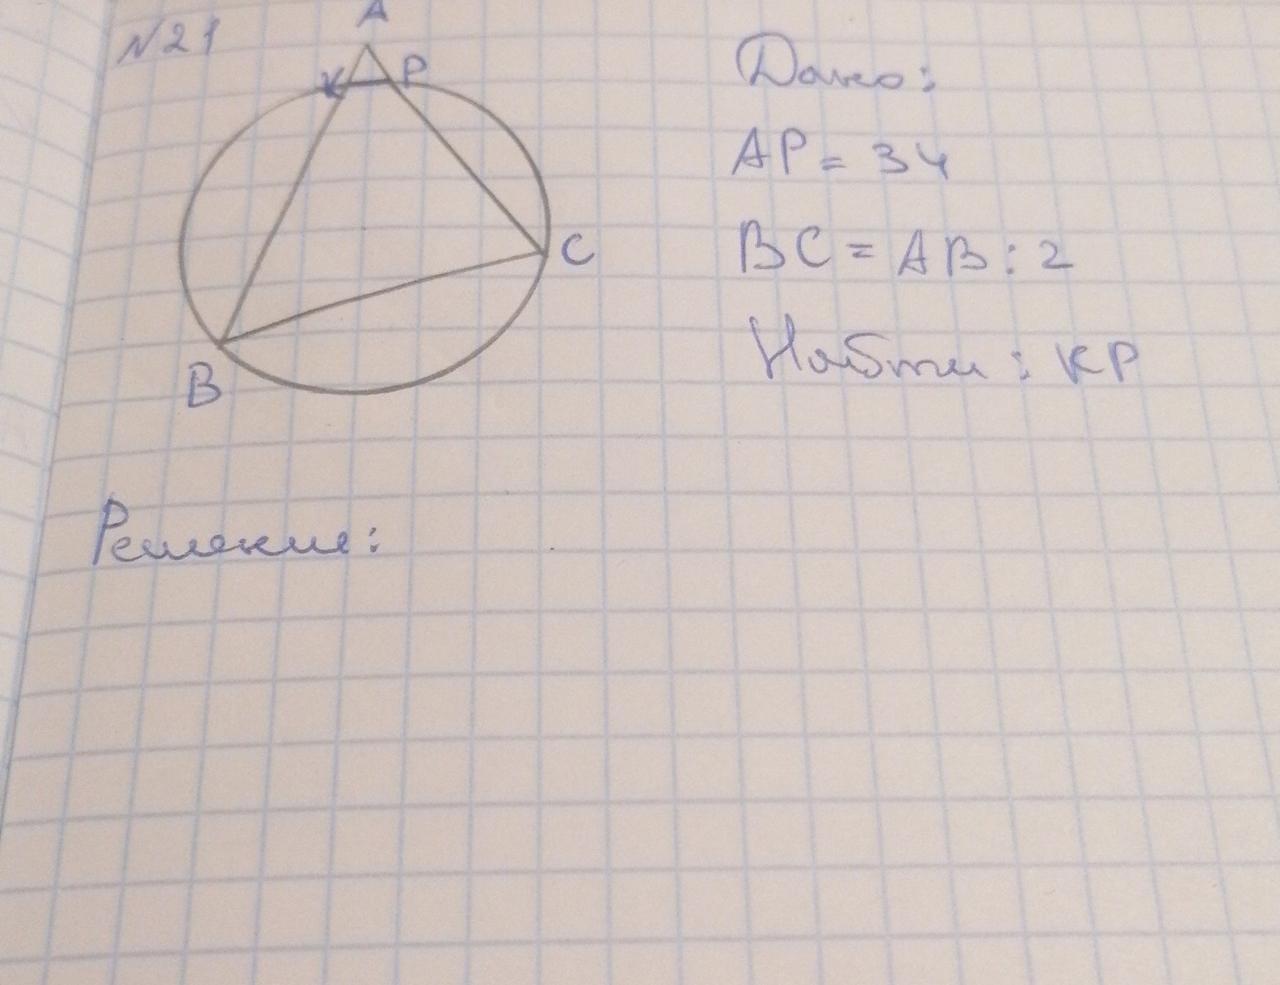 №21
A
K P
C
B
Дано:
AP = 34
BC = AB : 2
Найти : KP
Решение: